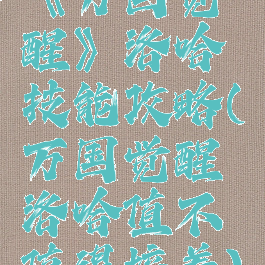 《万国觉
醒》洛哈
技能攻略(
万国觉醒
洛哈值不
值得培养)